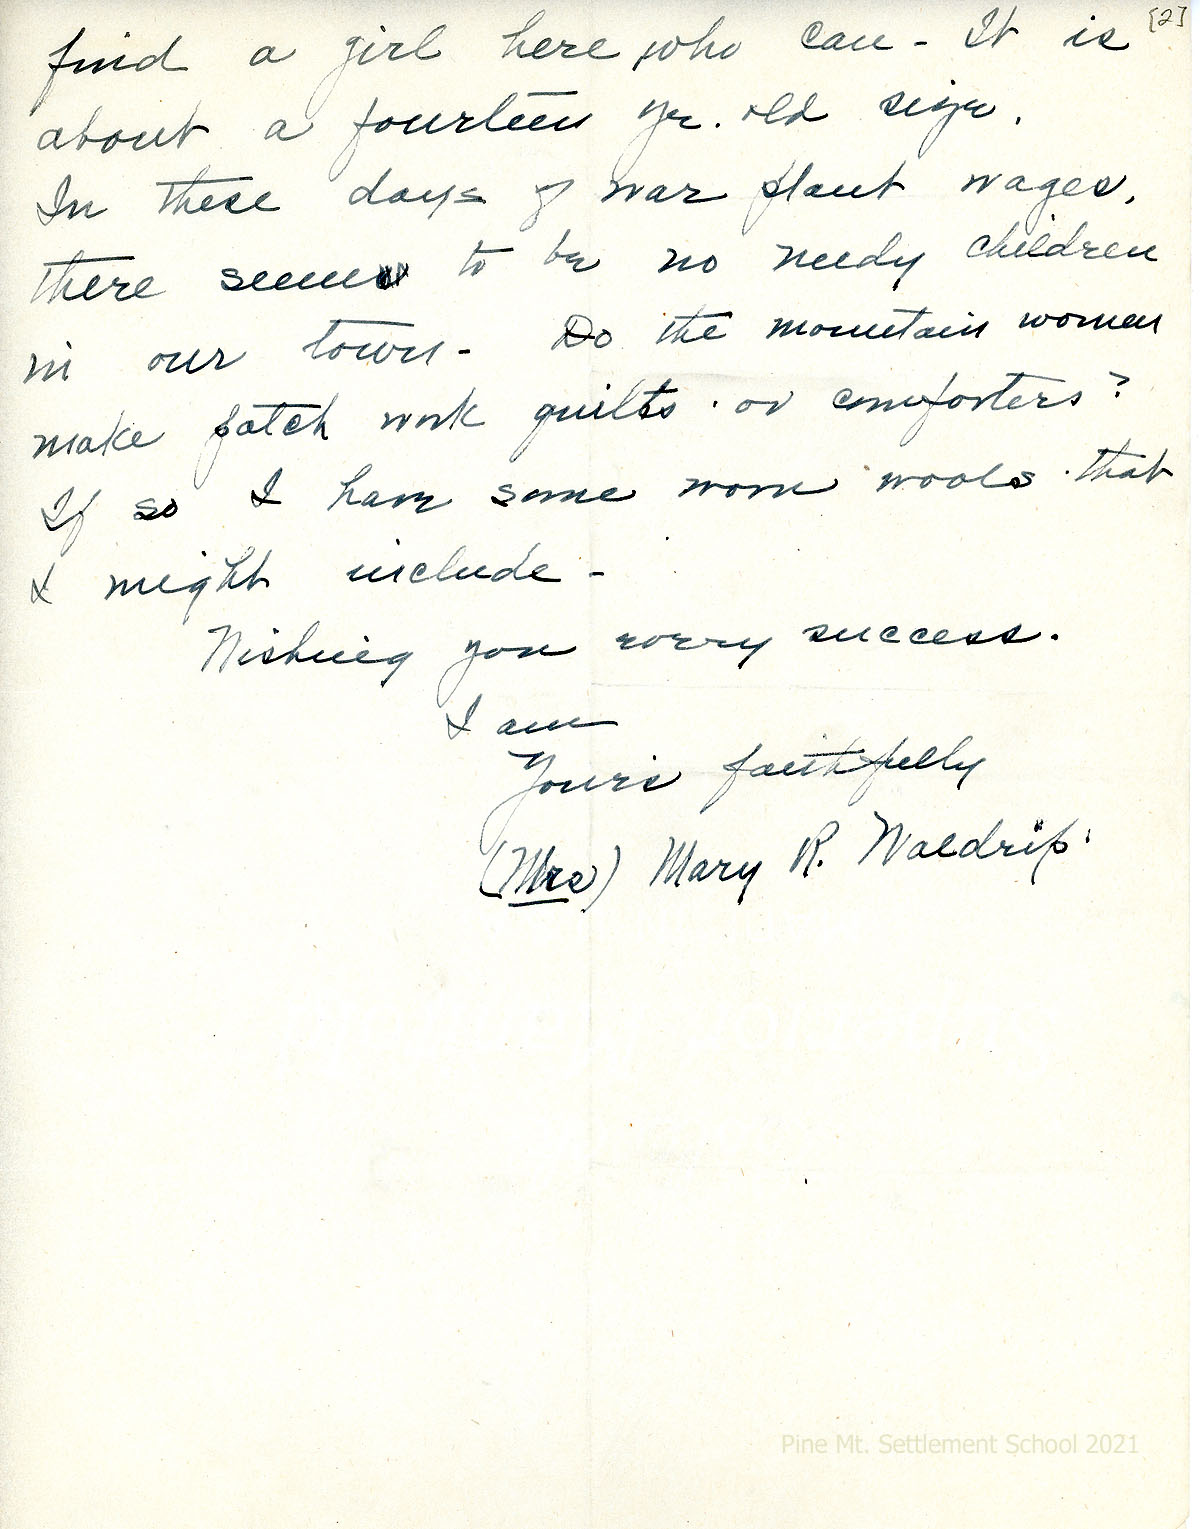 [2]
find a girl here who can - It is
about a fourteen yr. old size.
In these days of war plant wages,
there seems to be no needy children
in our town - Do the mountain women
make patch work quilts or comforters?
If so I have some worn wools that
I might include -
Wishing you every success.
I am
Yours faithfully
(Mrs) Mary R. Waldrip.
Pine Mt. Settlement School 2021